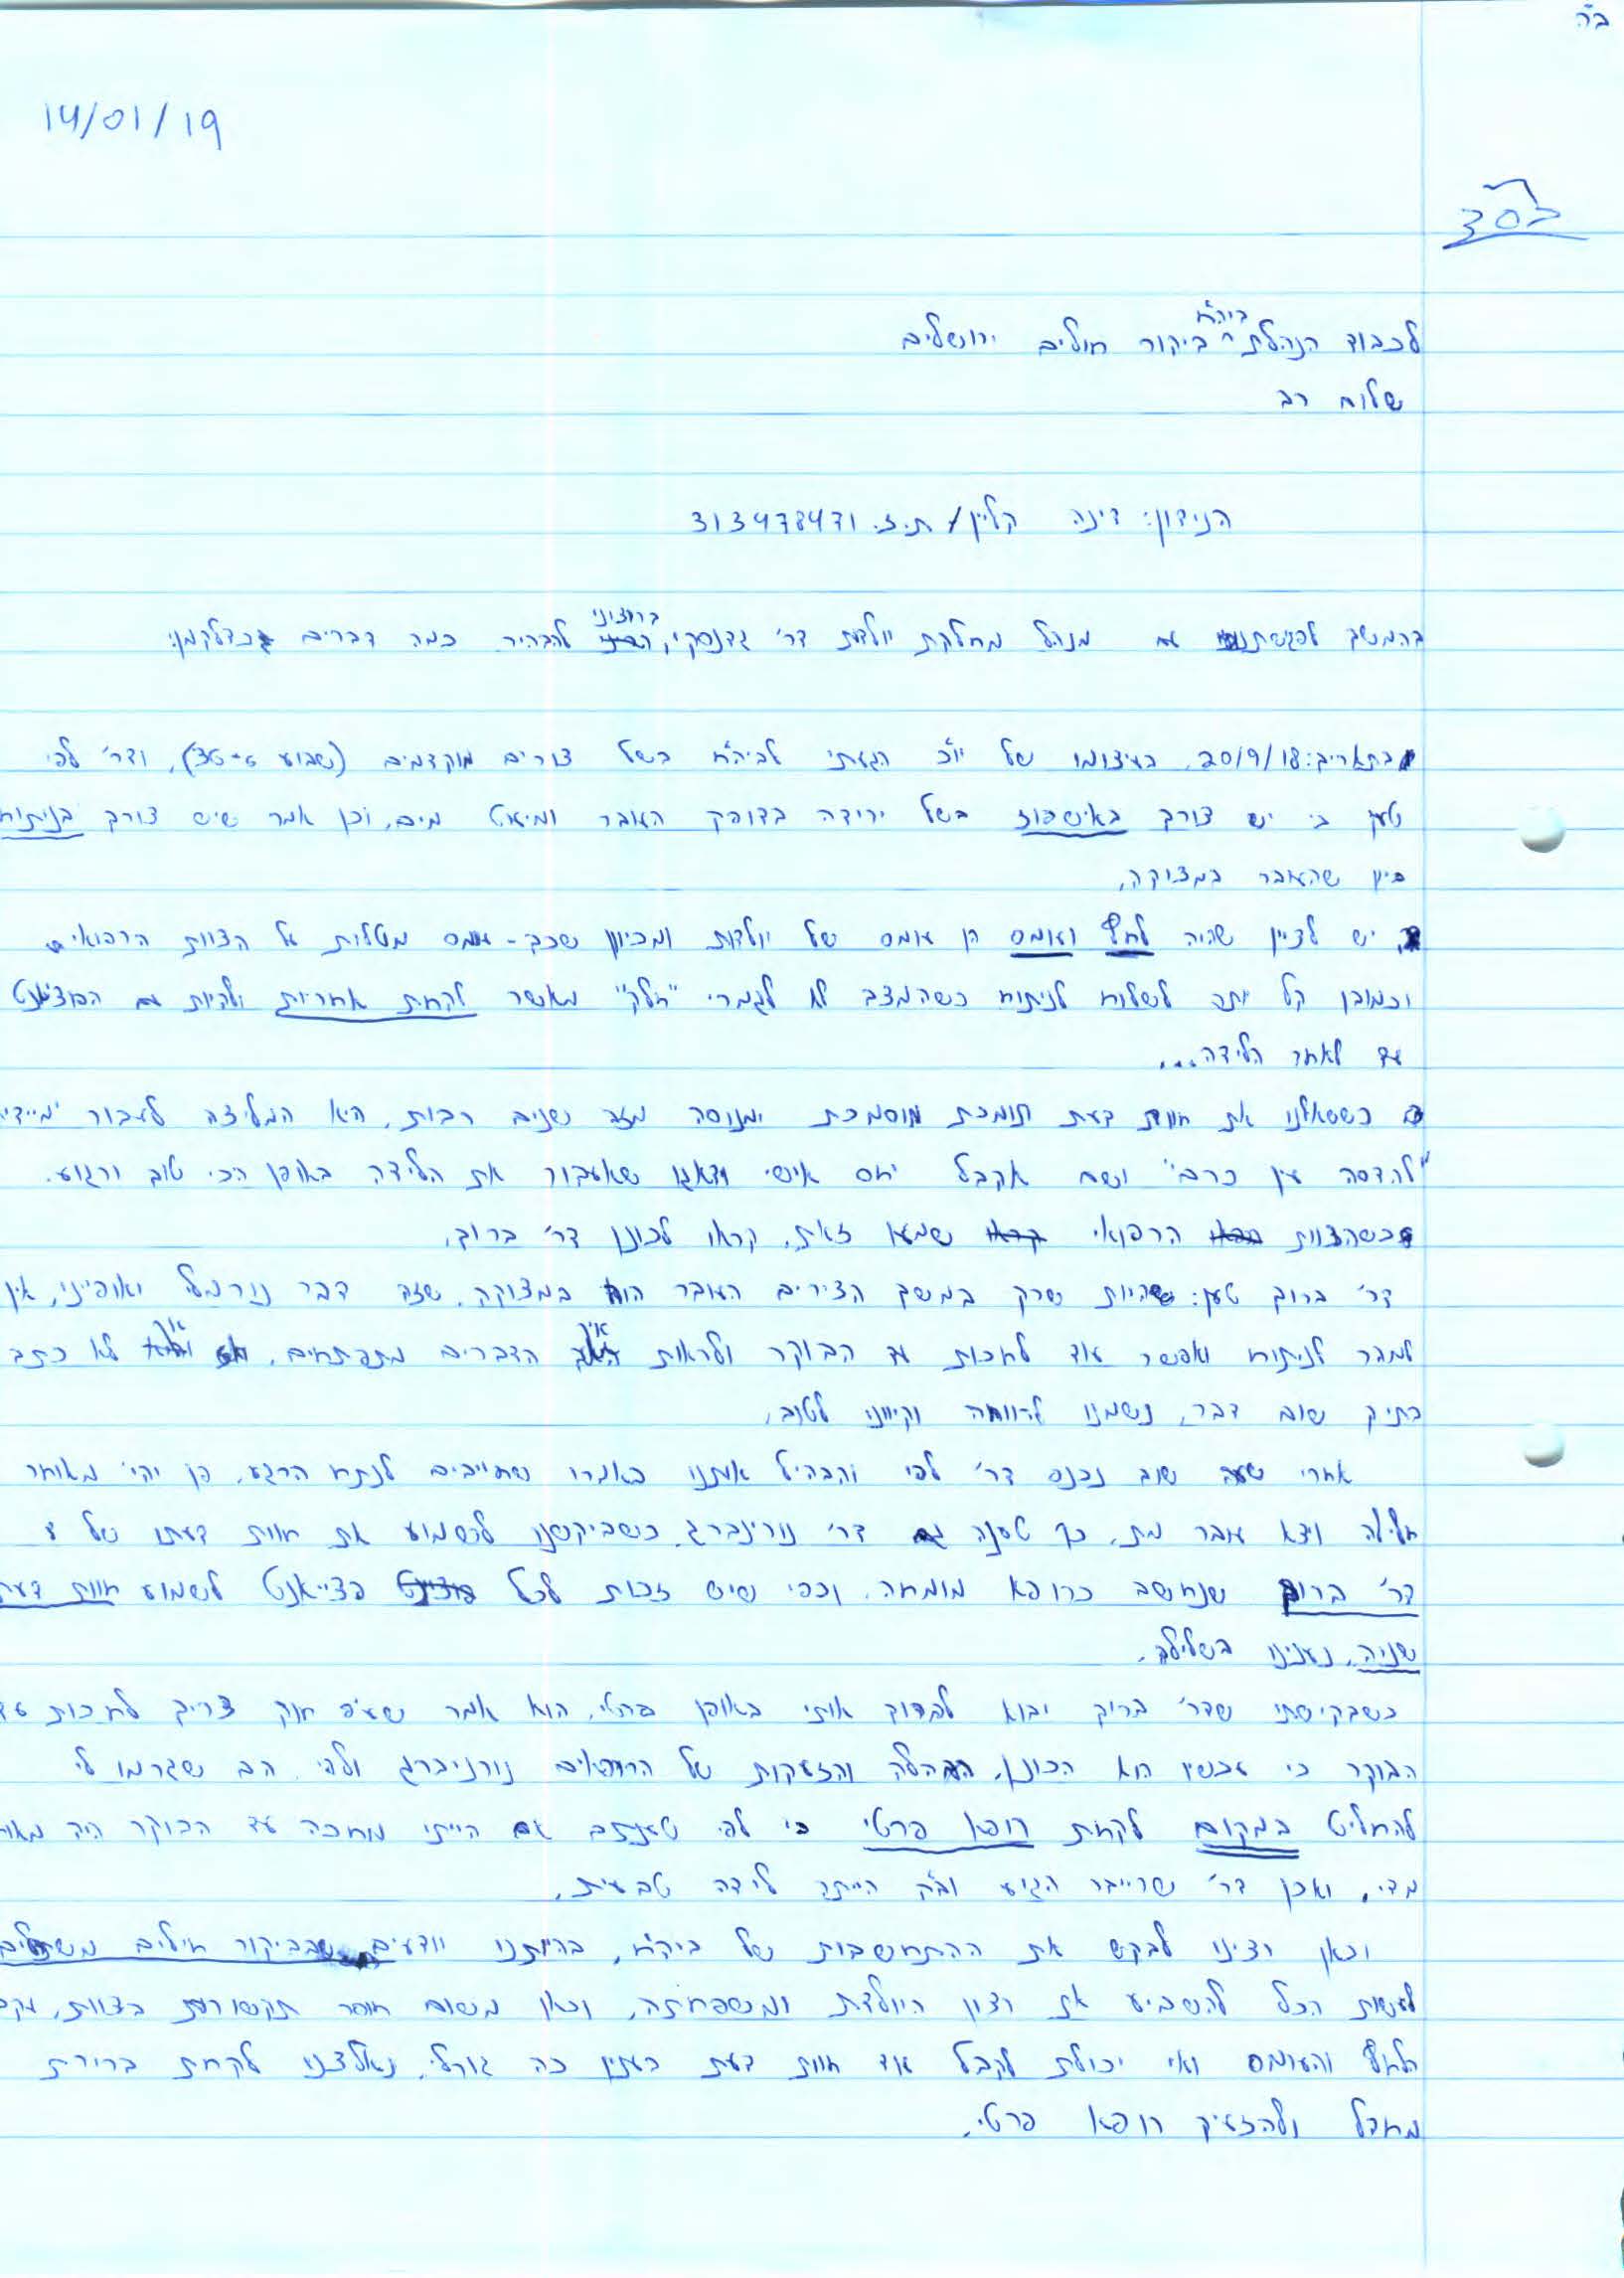 ב"ה
14/01/19
לכבוד הנהלת ביה"ח ביקור חולים ירושלים
שלום רב
הנידון: דינה קליין / ת.ז. 313478471
בהמשך לפגישתנו עם מנהל מחלקת יולדות דר' גדנסקי, ברצוני להבהיר כמה דברים כדלקמן:
בתאריך: 20/9/18 בעיצומו של יו"כ הגעתי לביה"ח בשל צירים מוקדמים (שבוע ), ודר' לפי
טען כי יש צורך באישפוז בשל ירידה בדופק העובר ומיעוט מים, וכן אמר שיש צורך בניתוח
כיון שהעובר במצוקה.
יש לציין שהיה לחץ ועומס הן עומס של יולדות ומכיוון שכך - עומס מטלות על הצוות הרפואי
וכמובן קל יותר לשלוח לניתוח כשהמצב לא לגמרי "חלק" מאשר לקחת אחריות ולהיות עם הפציינט
עד לאחר הלידה...
כששאלנו את חוות דעת תומכת מוסמכת ומנוסה מזה שנים רבות, היא המליצה לעבור מיידי
"להדסה עין כרם" ושם אקבל יחס אישי וידאגו שאעבור את הלידה באופן הכי טוב ורגוע.
כשהצוות הרפואי שמעו זאת, קראו לכונן דר' ברוך,
דר' ברוך טען: שהיות שרק במשך הצירים העובר הוא במצוקה, שזה דבר נורמלי ואופייני, אין
למהר לניתוח ואפשר עוד לחכות עד הבוקר ולראות איך הדברים מתפתחים, אך לא כתב
בתיק שום דבר, נשמנו לרווחה וקיווינו לטוב.
אחרי שעה שוב נכנס דר' לפי והבהיל אותנו באומרו שחייבים לנתח הרגע, הן יהי' מאוחר
חלילה ויצא עובר מת, כך טענה גם דר' נורינברג, כשביקשנו לשמוע את חוות דעתו של
דר' ברוך שנחשב כרופא מומחה, וכפי שיש זכות לכל פציאנט לשמוע חוות דעת
שניה, נענינו בשלילה.
כשבקשתי שדר' ברוך יבוא לבדוק אותי באופן פרטי, הוא אמר שע"פ חוק צריך לחכות עד
הבוקר כי עכשיו הוא הכונן, הבהלה והזעקות של הרופאים נורניברג ולפי הם שגרמו לי
להחליט במקום לקחת רופא פרטי כי לפי טענתם אם הייתי מחכה עד הבוקר היה
מדי, ואכן דר' שרייבר הגיע וב"ה הייתה לידה טבעית.
וכאן רצינו לבקש את ההתחשבות של ביה"ח, בהיותנו יודעים שבביקור חולים משתדלים
לעשות הכל להשביע את רצון היולדת ומשפחתה, וכאן משום חוסר תקשורת בצוות,
הלחץ והעומס ואי יכולת לקבל עוד חוות דעת בענין כה גורלי, נאלצנו לקחת ברירת
מחדל ולהזעיק רופא פרטי.